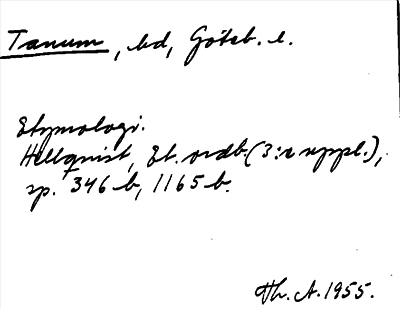 Tanum, bd, Göteb. l.
Etymologi.
Hellquist, Et. ordb. (3:e uppl.),
sp. 346 b, 1165 b.
Th. A. 1955.